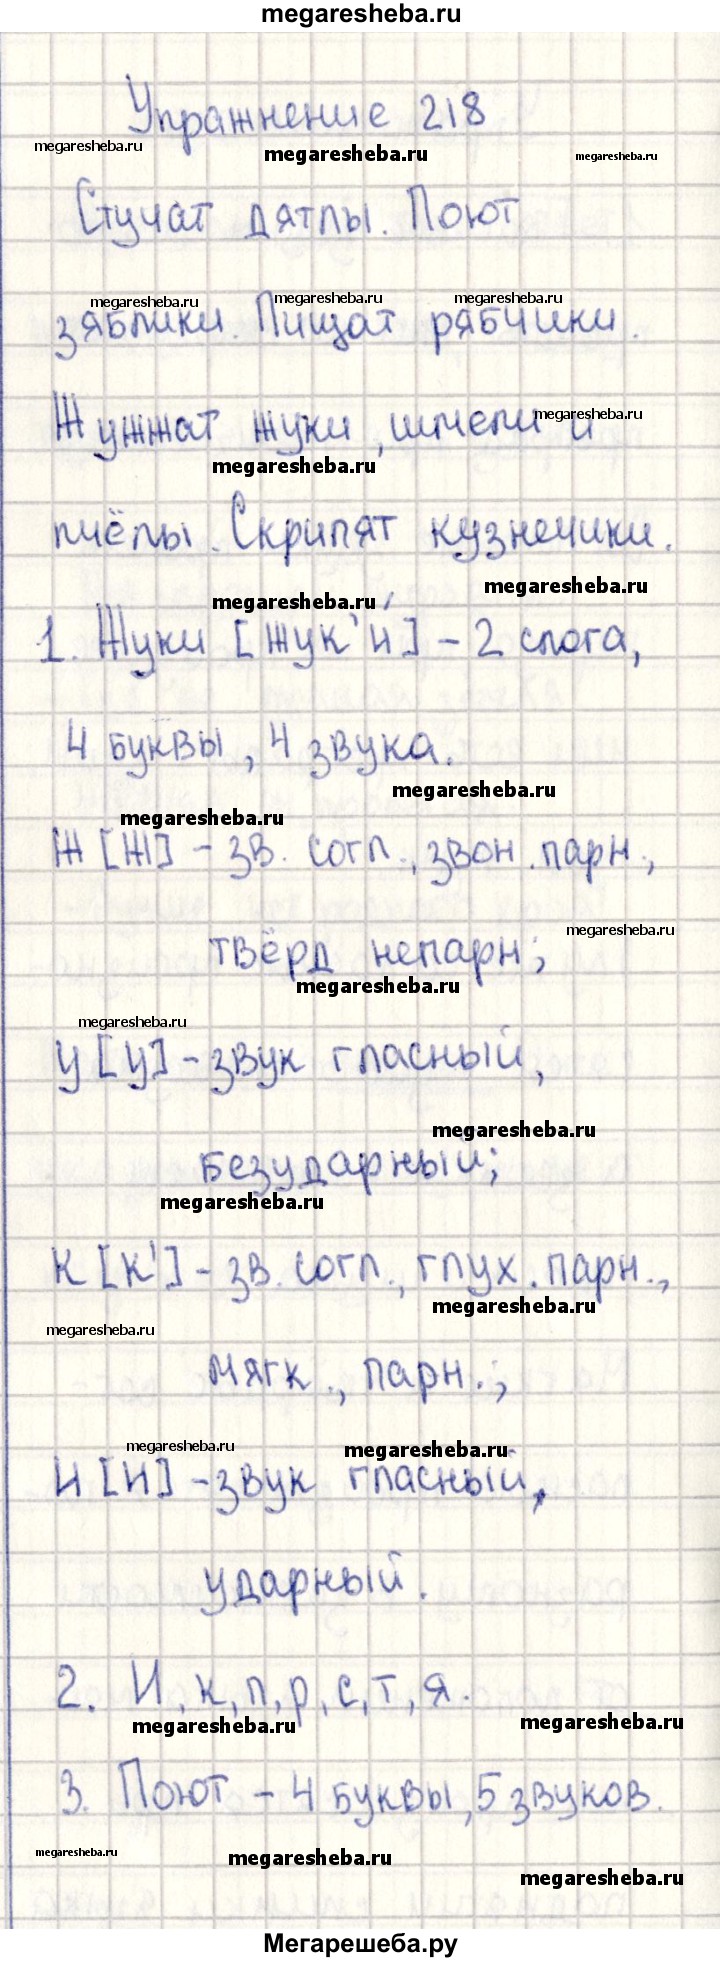 megaresheba.ru
Упражнение 218
megaresheba.ru megaresheba.ru megaresheba.ru
Стучат дятлы. Поют
megaresheba.ru megaresheba.ru megaresheba.ru
зяблики. Пищат рябчики.
megaresheba.ru
Жужжат жуки, шмели и
megaresheba.ru
пчёлы. Скрипят кузнечики.
megaresheba.ru
megaresheba.ru
1. Жуки [жук'и́] - 2 слога,
4 буквы, 4 звука.
megaresheba.ru
megaresheba.ru
Ж [ж] - зв. согл., звон. парн.,
megaresheba.ru
твёрд непарн;
megaresheba.ru
megaresheba.ru
у [у] - звук гласный,
megaresheba.ru
безударный;
megaresheba.ru
к [к'] - зв. согл., глух. парн.,
megaresheba.ru
megaresheba.ru
мягк., парн.;
megaresheba.ru megaresheba.ru
и [и] - звук гласный,
ударный.
2. И, к, п, р, с, т, я.
megaresheba.ru megaresheba.ru
3. Поют - 4 буквы, 5 звуков.
megaresheba.ru megaresheba.ru megaresheba.ru
Мегарешеба.ру